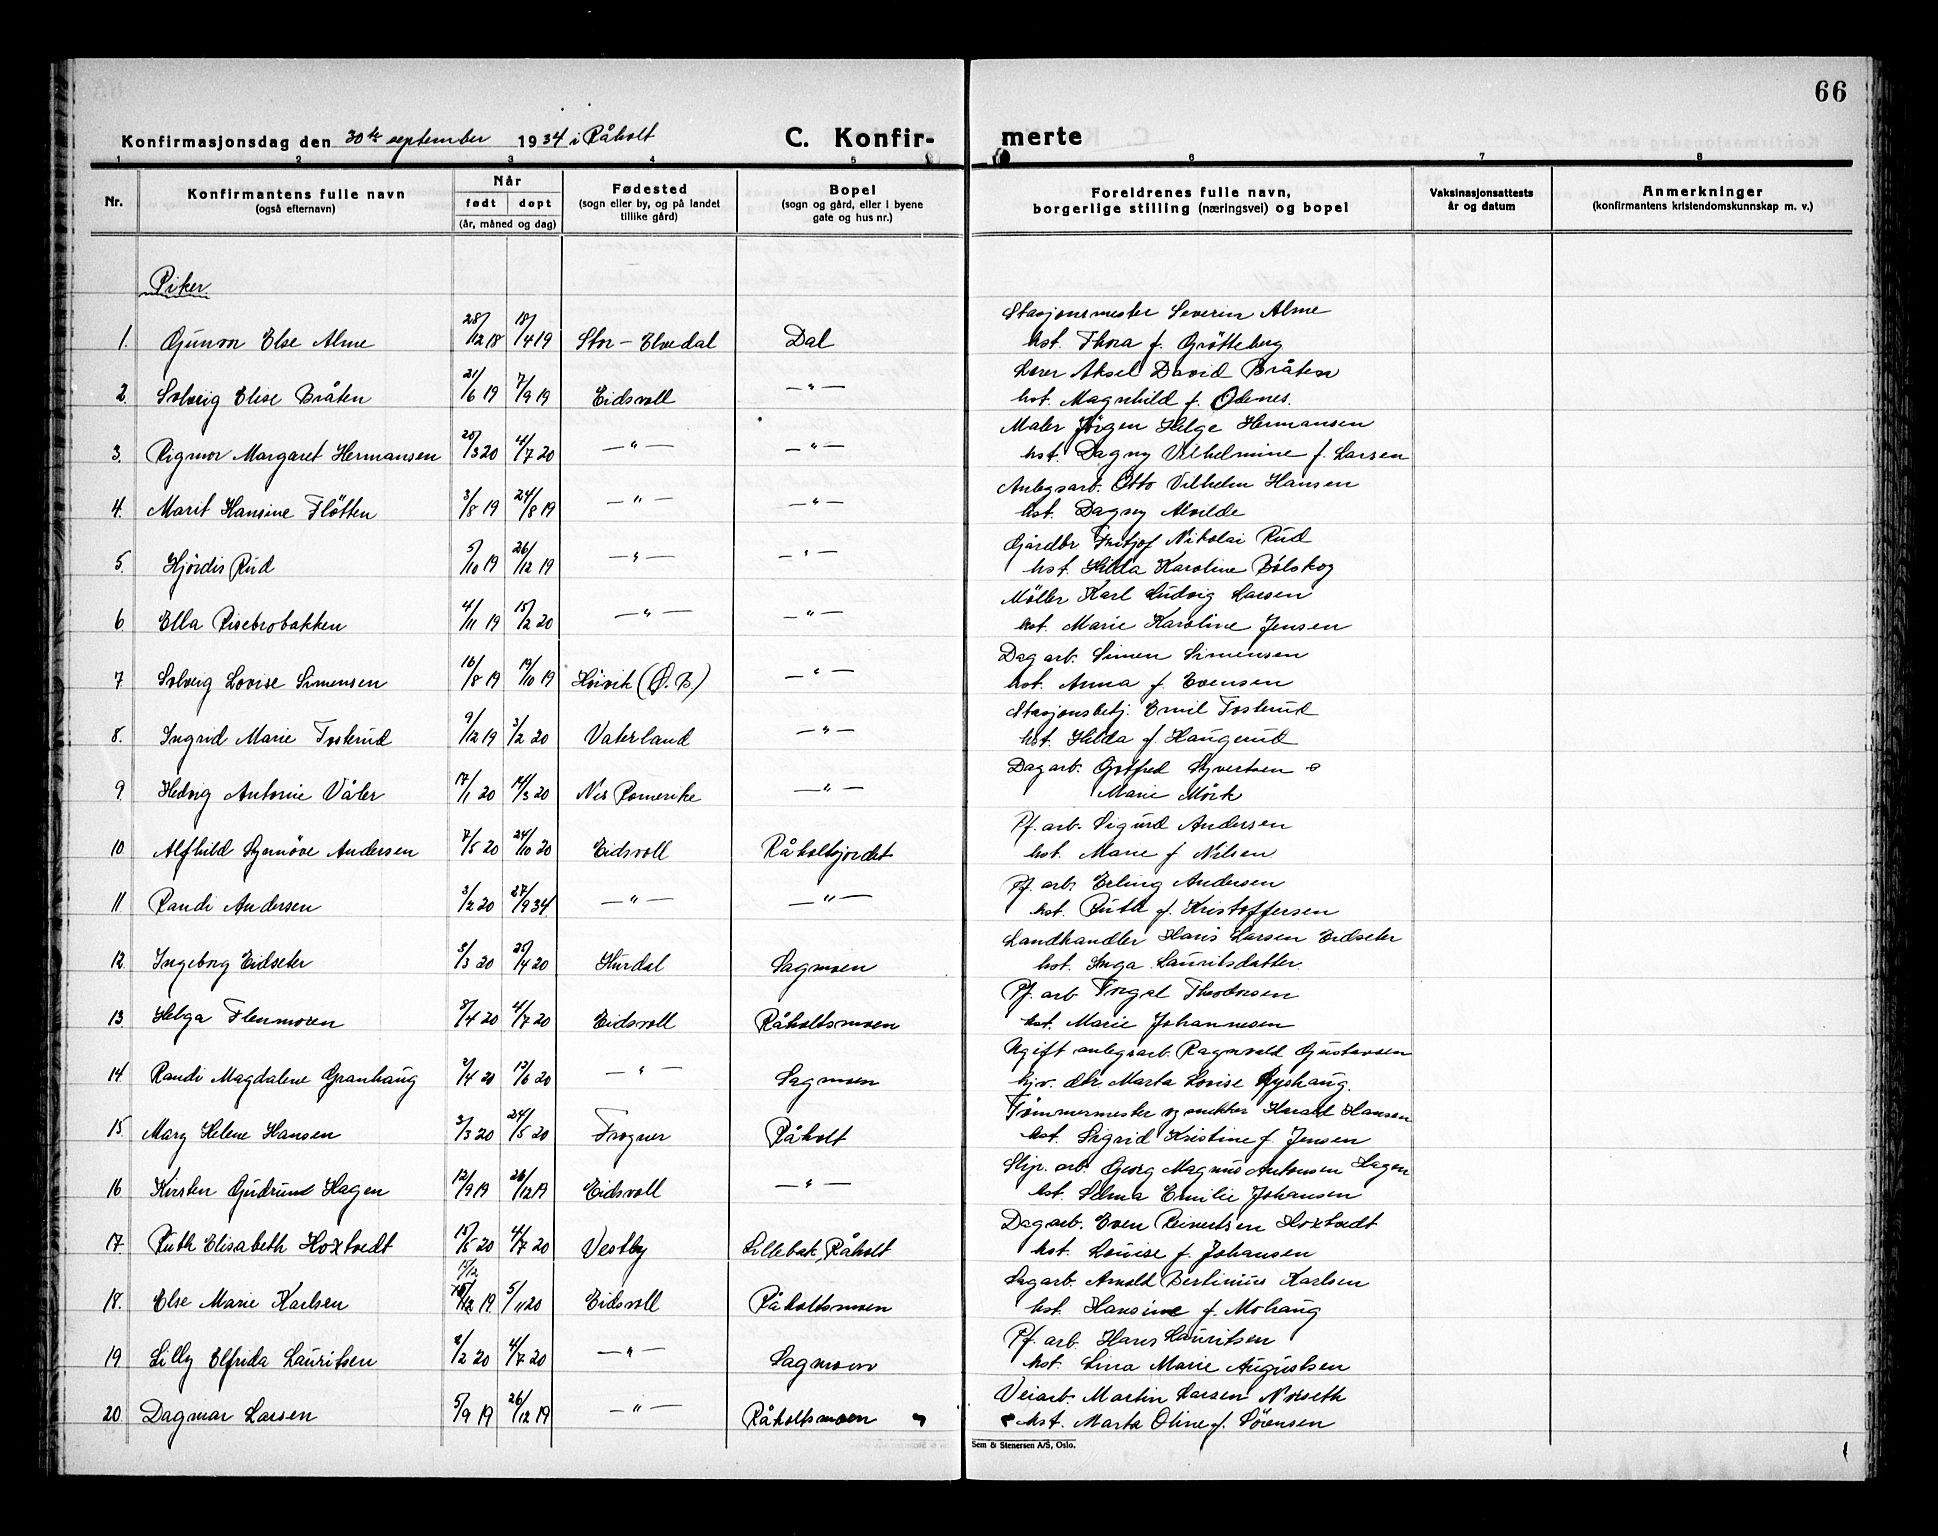 66
Konfirmasjonsdag den 30te september 1934 i Råholt C. Konfir- merte
1 2 3 4 5 6 7 8
Nr. Konfirmantens fulle navn (også efternavn) Når født døpt (år, måned og dag) Fødested (sogn eller by, og på landet tillike gård) Bopel (sogn og gård, eller i byene gate og hus nr.) Foreldrenes fulle navn, borgerlige stilling (næringsvei) og bopel Vaksinasjonsattests år og datum Anmerkninger (konfirmantens kristendomskunnskap m. v.)
Piker
Stasjonsmester Severin Alme
1. Gunvor Else Alme 28/12 18 18/4 19 Stor-Elvedal Dal hst. Thora f. Grötteberg
Lærer Aksel David Bråten
2. Solveig Elise Bråten 21/6 19 7/9 19 Eidsvoll —"— hst. Magnhild f. Odenes.
Maler Jörgen Helge Hermansen
3. Rigmor Margaret Hermansen 20/3 20 4/7 20 —"— —"— hst. Dagny Vilhelmine f. Larsen
Anlegsarb. Otto Vilhelm Hansen
4. Marit Hansine Flötten 3/8 19 24/8 19 —"— —"— hst. Dagny Alvilde
Gårdbr. Fritjof Nikolai Rud
5. Hjördis Rud 5/10 19 26/12 19 —"— —"— hst. Hilda Karoline Bölskog
Møller Karl Ludvig Larsen
6. Ella Risebrobakken 4/11 19 15/2 20 —"— —"— hst. Marie Karoline Jensen
Dagarb. Simen Simensen
7 Solveig Lovise Simensen 16/8 19 19/10 19 Høvik (Ø.B.) —"— hst. Anna f. Evensen
Stasjonsbetj. Emil Tosterud
8. Ingrid Marie Tosterud 9/12 19 3/2 20 Vaterland —"— hst. Hilda f. Haugerud
Dagarb. Gotfred Syvertsen o
9. Hedvig Antonie Våler 17/1 20 14/3 20 Nes Romerike —"— Marie Mörk
Pf. arb. Sigurd Andersen
10 Alfhild Synnöve Andersen 7/5 20 24/10 20 Eidsvoll Råholtjordet hst. Marie f. Nilsen
Pf. arb. Erling Andersen
11 Randi Andersen 3/2 20 27/9 34 —"— —"— hst. Ruth f. Kristoffersen
Landhandler Hans Larsen Eidseter
12. Ingeborg Eidseter 3/3 20 25/4 20 Hurdal Sagmoen hst. Inga Lauritsdatter
Pf. arb Torgal Theodorsen
13. Helga Flenmoren 8/4 20 4/7 20 Eidsvoll Råholtsmoen hst. Marie Johannesen
Ugift anlegsarb. Ragnvald Gustavsen
14 Randi Magdalene Granhaug 2/4 20 13/6 20 —"— Sagmoen hjv. dtr. Marta Lovise Nyshaug.
Tömmermester og snekker Harald Hansen
15. Mary Helene Hansen 3/3 20 24/5 20 Frogner Råholt hst. Sigrid Kristine f. Jensen
Slip. arb. Georg Magnus Antonsen Hagen
16 Kirsten Gudrund Hagen 12/9 19 26/12 19 Eidsvoll —"— hst. Selma Emilie Johansen
Dagarb. Even Reinertsen Hoxtvedt
17. Ruth Elisabeth Hoxtvedt 15/5 20 4/7 20 Vestby Lillebak, Råholt hst. Louise f. Johansen
Sagarb. Arnold Bertinius Karlsen
18. Else Marie Karlsen 12 19 5/11 20 Eidsvoll Råholtsmoen hst. Hansine f. Mohaug
Pf. arb. Hans Lauritsen
19 Lilly Elfrida Lauritsen 8/2 20 4/7 20 —"— Sagmoen hst. Lina Marie Augustsen
Veiarb. Martin Larsen Norseth
20. Dagmar Larsen 5/9 19 26/12 19 —"— Råholtsmoen hst. Marta Oline f. Sörensen
Sem & Stenersen A/S, Oslo.